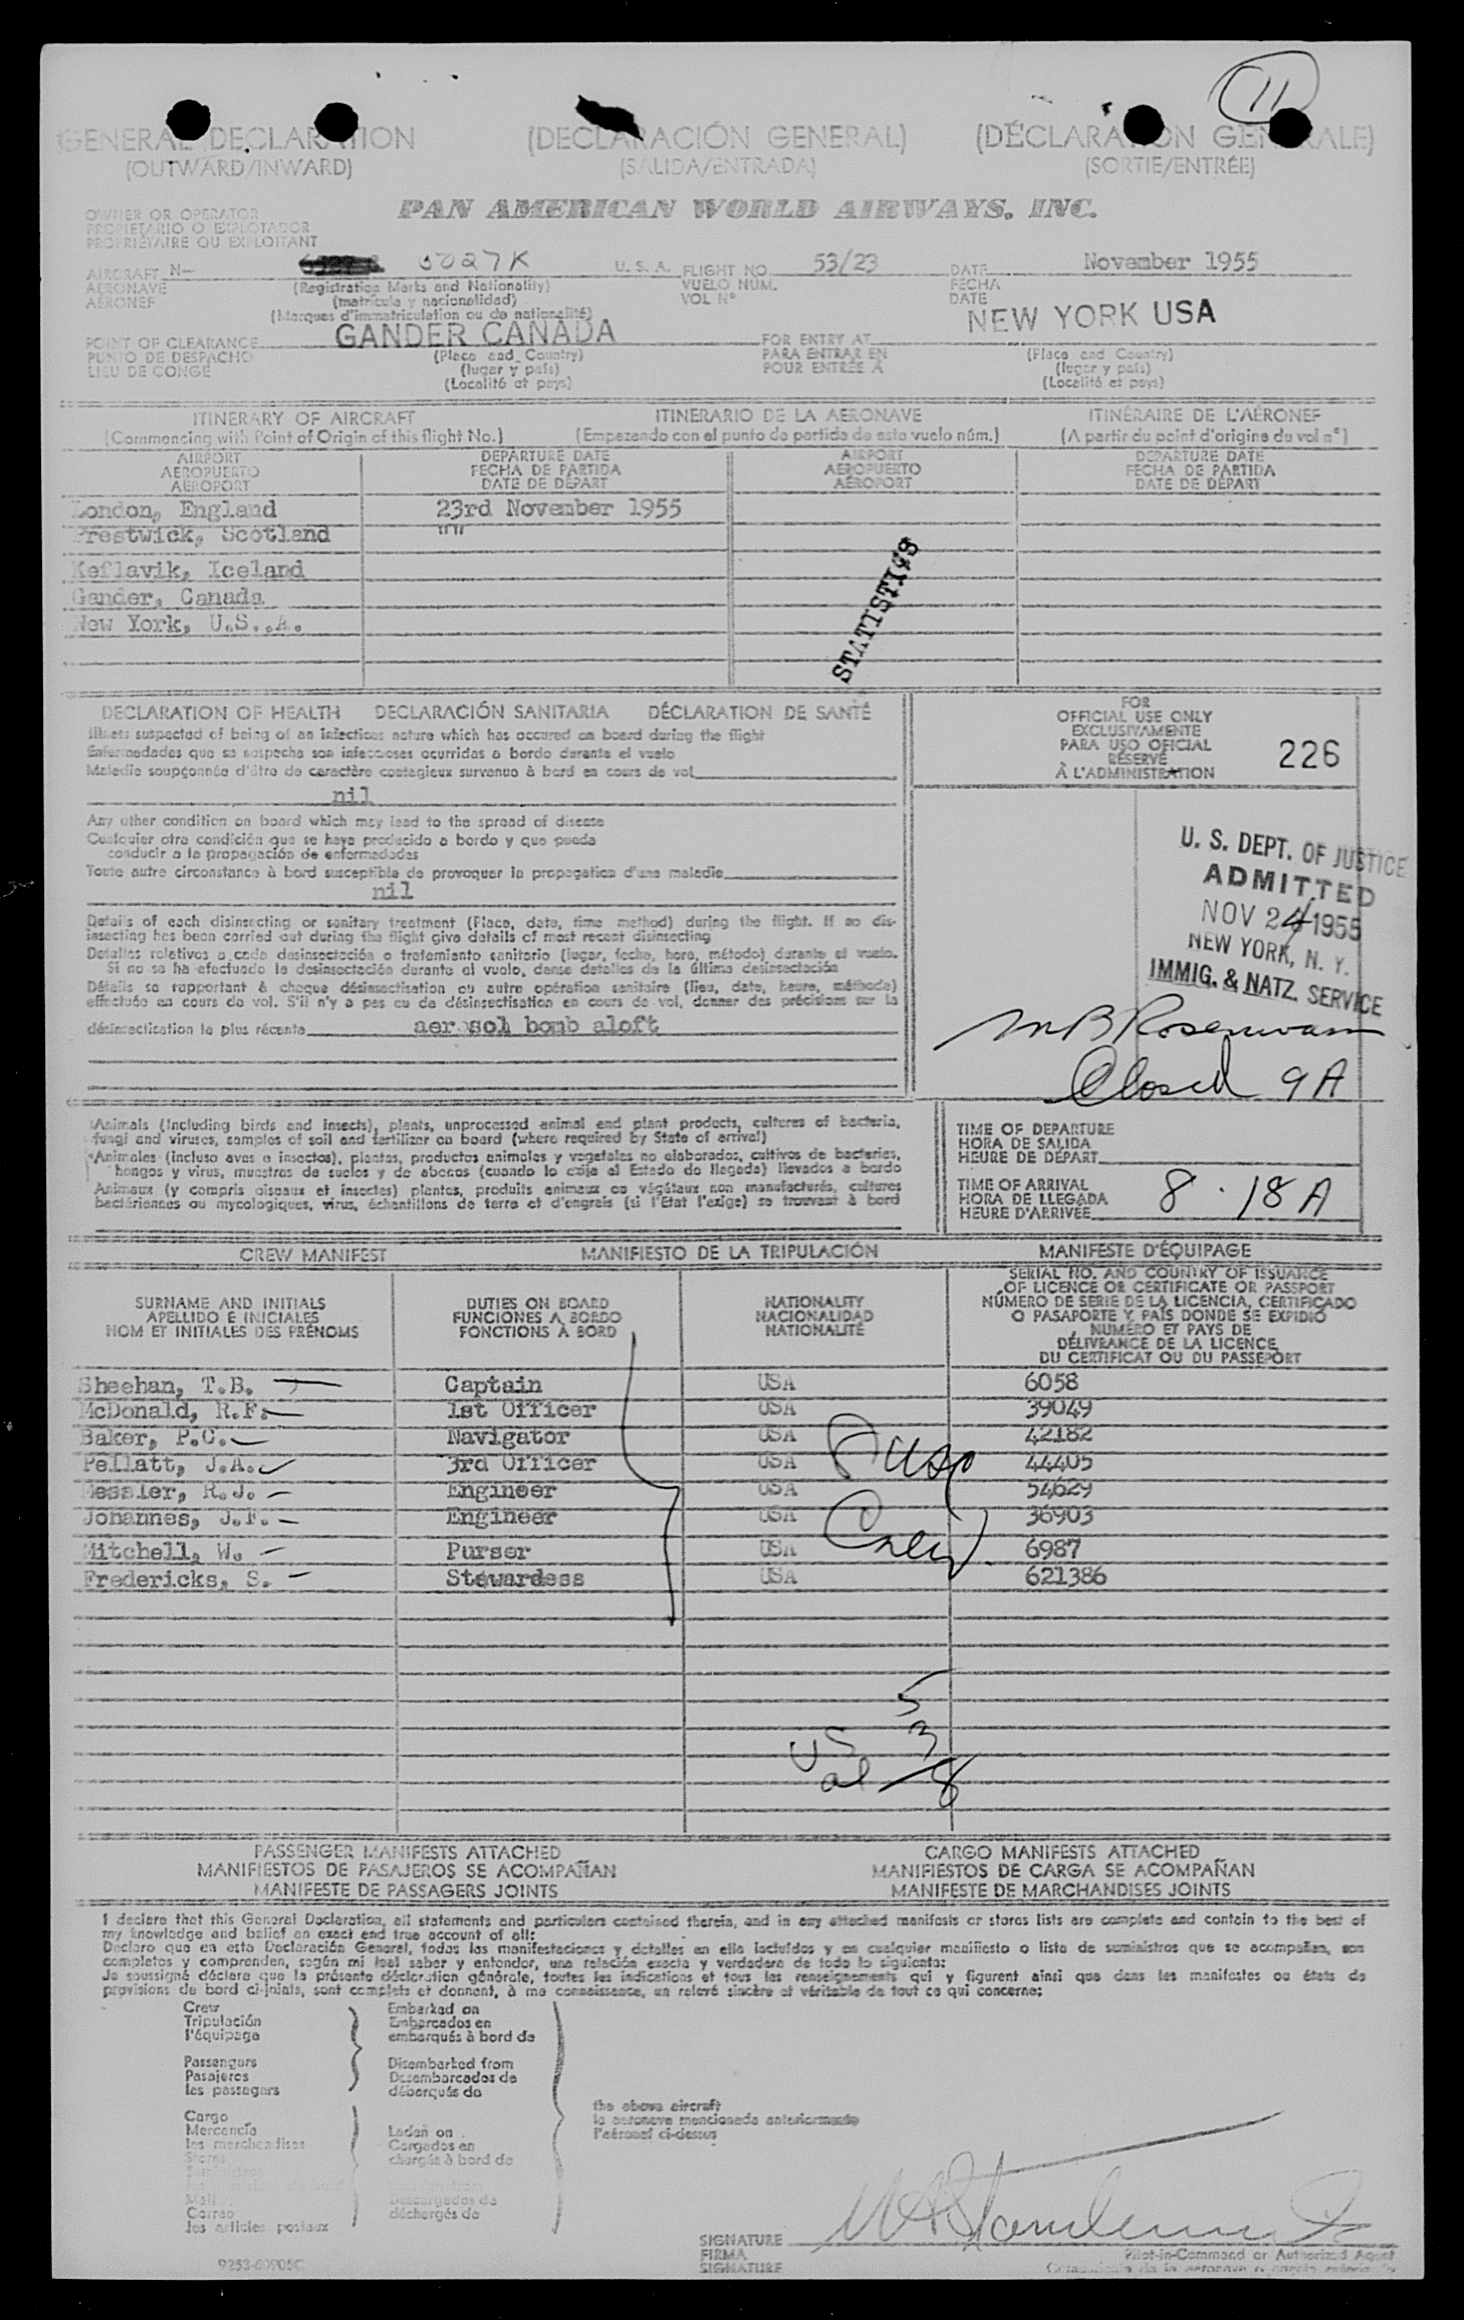 11
GENERAL DECLARATION (DECLARACIÓN GENERAL) (DÉCLARATION GENERALE)
(OUTWARD/INWARD) (SALIDA/ENTRADA) (SORTIE/ENTRÉE)
OWNER OR OPERATOR
PROPIETARIO O EXPLOTADOR
PROPRIÉTAIRE OU EXPLOITANT
PAN AMERICAN WORLD AIRWAYS, INC.
AIRCRAFT N- 5027K U. S. A. FLIGHT NO. 53/23 DATE November 1955
AERONAVE (Registration Marks and Nationality) VUELO NÚM. FECHA
AÉRONEF (matrícula y nacionalidad) VOL Nº DATE
(Marques d'immatriculation ou de nationalité)
POINT OF CLEARANCE GANDER CANADA FOR ENTRY AT NEW YORK USA
PUNTO DE DESPACHO (Place and Country) PARA ENTRAR EN (Place and Country)
LIEU DE CONGÉ (lugar y país) POUR ENTRÉE À (lugar y país)
(Localité et pays) (Localité et pays)
ITINERARY OF AIRCRAFT ITINERARIO DE LA AERONAVE ITINÉRAIRE DE L'AÉRONEF
(Commencing with Point of Origin of this flight No.) (Empezando con el punto de partida de este vuelo núm.) (A partir du point d'origine du vol nº)
AIRPORT DEPARTURE DATE AIRPORT DEPARTURE DATE
AEROPUERTO FECHA DE PARTIDA AEROPUERTO FECHA DE PARTIDA
AÉROPORT DATE DE DÉPART AÉROPORT DATE DE DÉPART
London, England 23rd November 1955
Prestwick, Scotland """
Keflavik, Iceland
Gander, Canada
New York, U.S.A.
STATISTICS
DECLARATION OF HEALTH DECLARACIÓN SANITARIA DÉCLARATION DE SANTÉ
Illness suspected of being of an infectious nature which has occured on board during the flight
Enfermedades que se sospecha son infecciosas ocurridas a bordo durante el vuelo
Maladie soupçonnée d'être de caractère contagieux survenue à bord en cours de vol
nil
Any other condition on board which may lead to the spread of disease
Cualquier otra condición que se haya producido a bordo y que pueda
conducir a la propagación de enfermedades
Toute autre circonstance à bord susceptible de provoquer la propagation d'une maladie
nil
Details of each disinsecting or sanitary treatment (Place, date, time method) during the flight. If no dis-
insecting has been carried out during the flight give details of most recent disinsecting
Detalles relativos a cada desinsectación o tratamiento sanitario (lugar, fecha, hora, método) durante el vuelo.
Si no se ha efectuado la desinsectación durante el vuelo, dense detalles de la última desinsectación
Détails se rapportant à chaque désinsectisation ou autre opération sanitaire (lieu, date, heure, méthode)
effectuée en cours de vol. S'il n'y a pas eu de désinsectisation en cours de vol, donner des précisions sur la
désinsectisation la plus récente aerosol bomb aloft
FOR
OFFICIAL USE ONLY
EXCLUSIVAMENTE
PARA USO OFICIAL
RÉSERVÉ
À L'ADMINISTRATION
226
U. S. DEPT. OF JUSTICE
ADMITTED
NOV 24 1955
NEW YORK, N. Y.
IMMIG. & NATZ. SERVICE
Closed 9 A
Animals (including birds and insects), plants, unprocessed animal and plant products, cultures of bacteria,
fungi and viruses, samples of soil and fertilizer on board (where required by State of arrival)
Animales (incluso aves e insectos), plantas, productos animales y vegetales no elaborados, cultivos de bacterias,
hongos y virus, muestras de suelos y de abonos (cuando lo exija el Estado de llegada) llevados a bordo
Animaux (y compris oiseaux et insectes) plantes, produits animaux ou végétaux non manufacturés, cultures
bactériennes ou mycologiques, virus, échantillons de terre et d'engrais (si l'État l'exige) se trouvant à bord
TIME OF DEPARTURE
HORA DE SALIDA
HEURE DE DÉPART
TIME OF ARRIVAL
HORA DE LLEGADA
HEURE D'ARRIVÉE
8.18 A
CREW MANIFEST MANIFIESTO DE LA TRIPULACIÓN MANIFESTE D'ÉQUIPAGE
SURNAME AND INITIALS
APELLIDO E INICIALES
NOM ET INITIALES DES PRÉNOMS
DUTIES ON BOARD
FUNCIONES A BORDO
FONCTIONS À BORD
NATIONALITY
NACIONALIDAD
NATIONALITÉ
SERIAL NO. AND COUNTRY OF ISSUANCE
OF LICENCE OR CERTIFICATE OR PASSPORT
NÚMERO DE SERIE DE LA LICENCIA, CERTIFICADO
O PASAPORTE Y PAÍS DONDE SE EXPIDIÓ
NUMÉRO ET PAYS DE
DÉLIVRANCE DE LA LICENCE,
DU CERTIFICAT OU DU PASSEPORT
Sheehan, T.B. Captain USA 6058
McDonald, R.F. 1st Officer USA 39049
Baker, P.C. Navigator USA 42182
Pellatt, J.A. 3rd Officer USA 44405
Messler, R.J. Engineer USA 54629
Johannes, J.F. Engineer USA 36903
Mitchell, W. Purser USA 6987
Fredericks, S. Stewardess USA 621386
Crew
5
US 3
al 8
PASSENGER MANIFESTS ATTACHED CARGO MANIFESTS ATTACHED
MANIFIESTOS DE PASAJEROS SE ACOMPAÑAN MANIFIESTOS DE CARGA SE ACOMPAÑAN
MANIFESTE DE PASSAGERS JOINTS MANIFESTE DE MARCHANDISES JOINTS
I declare that this General Declaration, all statements and particulars contained therein, and in any attached manifests or stores lists are complete and contain to the best of
my knowledge and belief an exact and true account of all:
Declaro que en esta Declaración General, todas las manifestaciones y detalles en ella incluídos y en cualquier manifiesto o lista de suministros que se acompañan, son
completos y comprenden, según mi leal saber y entender, una relación exacta y verdadera de todo lo siguiente:
Je soussigné déclare que la présente déclaration générale, toutes les indications et tous les renseignements qui y figurent ainsi que dans les manifestes ou états de
provisions de bord ci-joints, sont complets et donnent, à ma connaissance, un relevé sincère et véritable de tout ce qui concerne:
Crew Embarked on
Tripulación Embarcados en
l'équipage embarqués à bord de
Passengers Disembarked from
Pasajeros Desembarcados de
les passagers débarqués de
the above aircraft
la aeronave mencionada anteriormente
l'aéronef ci-dessus
Cargo
Mercancía Laden on
les marchandises Cargados en
Stores chargés à bord de
Mail Descargados de
Correo déchargés de
les articles postaux
SIGNATURE
FIRMA
SIGNATURE
Pilot-in-Command or Authorized Agent
9253-60905C